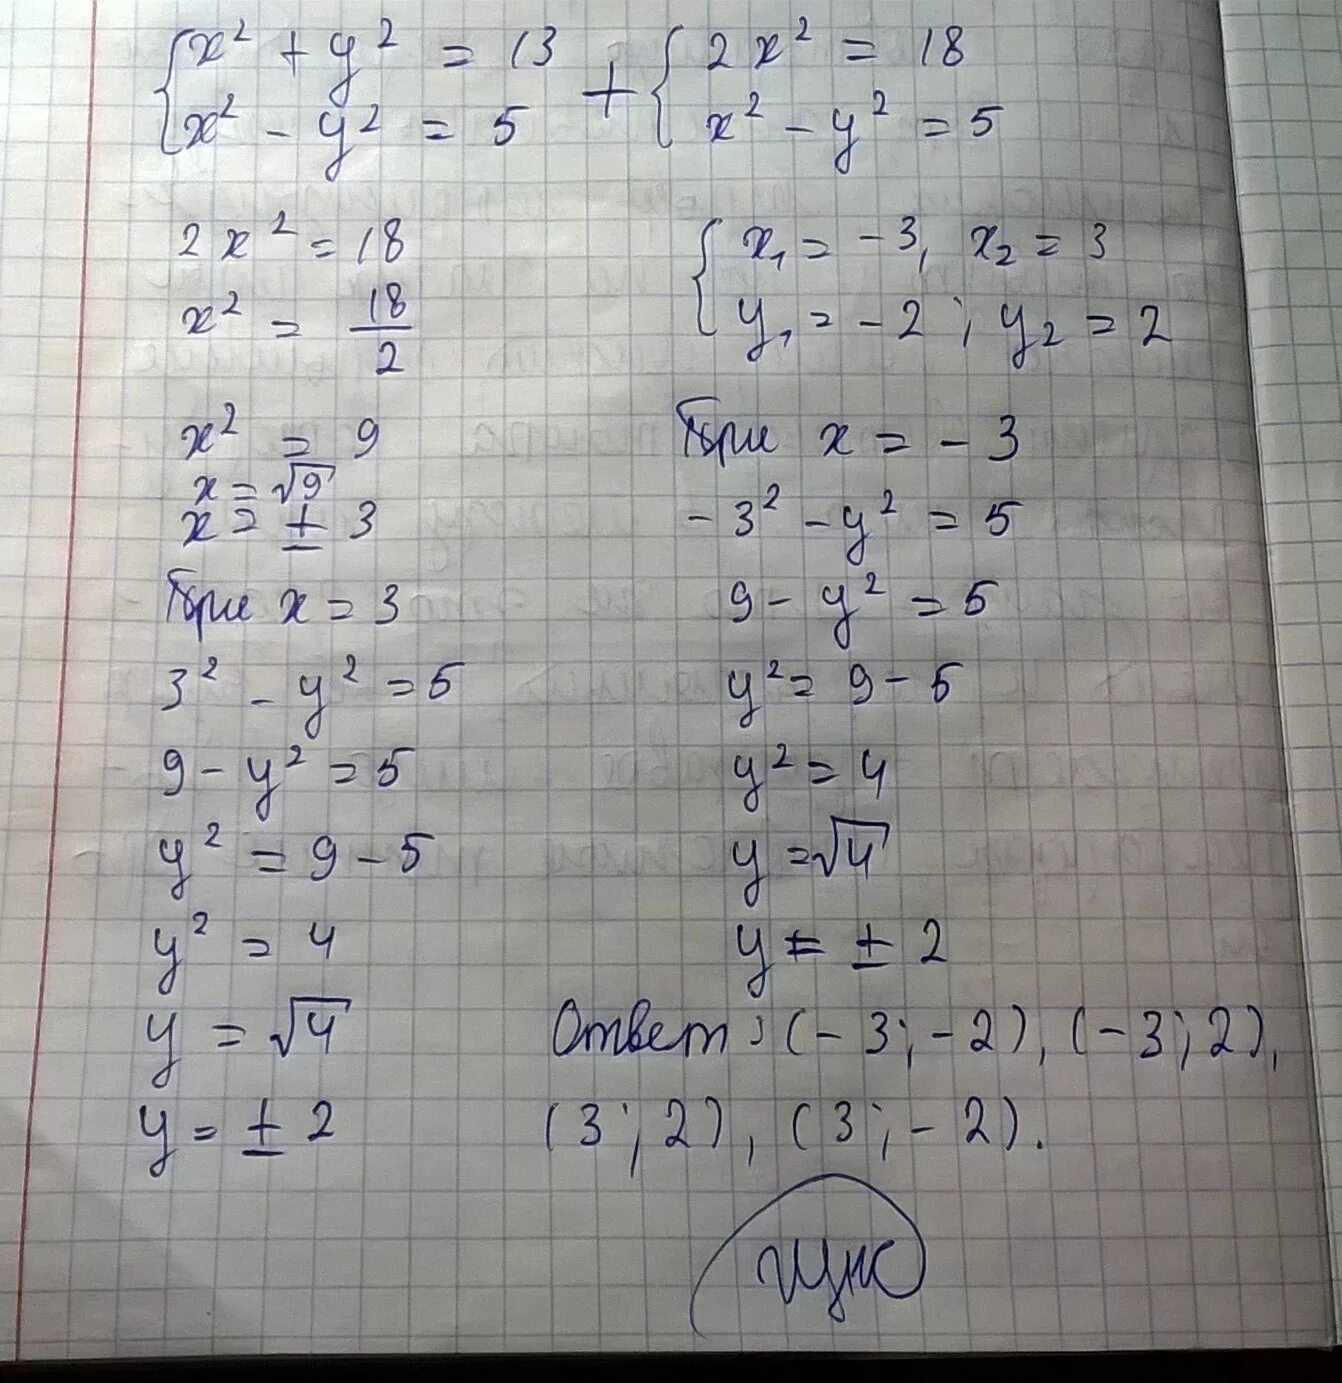 {x² + y² = 13 + {2x² = 18
{x² - y² = 5 {x² - y² = 5
2x² = 18
x² = 18/2
x² = 9
x = √9
x = ± 3
При x = 3
3² - y² = 5
9 - y² = 5
y² = 9 - 5
y² = 4
y = √4
y = ± 2
{x₁ = -3, x₂ = 3
{y₁ = -2; y₂ = 2
При x = -3
-3² - y² = 5
9 - y² = 5
y² = 9 - 5
y² = 4
y = √4
y = ± 2
Ответ: (-3; -2), (-3; 2),
(3; 2), (3; -2).